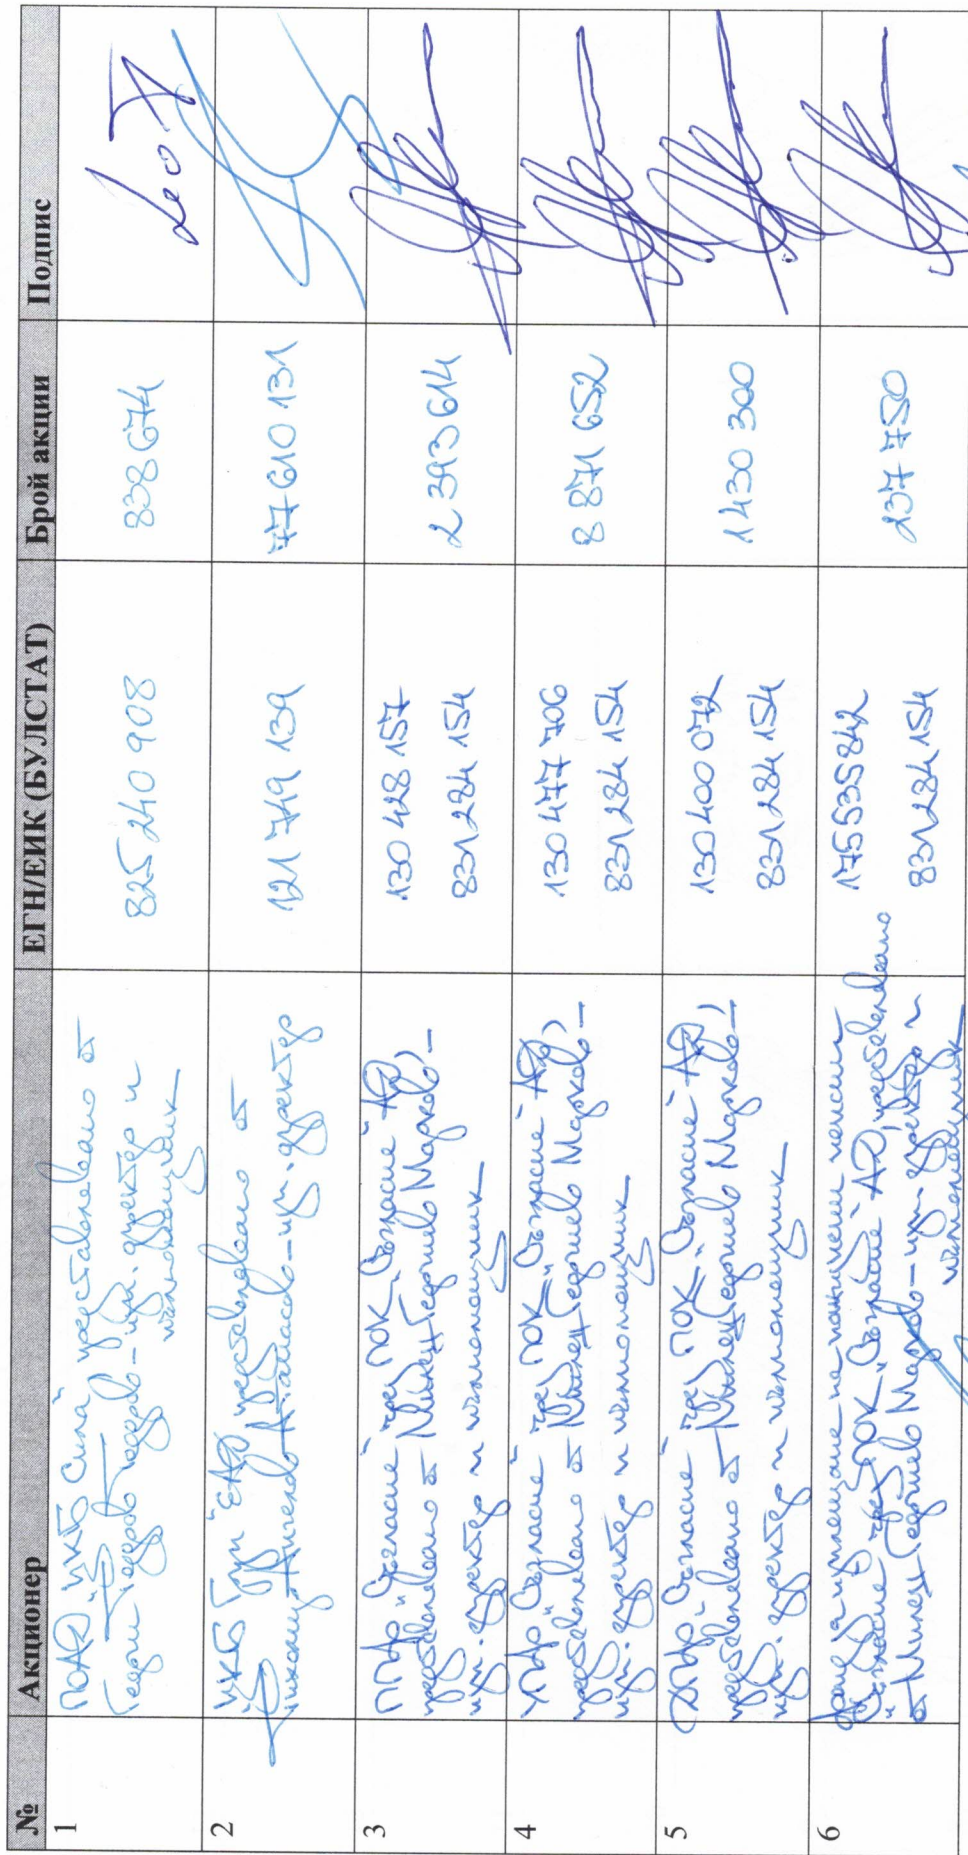 № Акционер ЕГН/ЕИК (БУЛСТАТ) Брой акции Подпис
1
ПОАД "ЦКБ Сила" представлявано от
Георги Тодоров Тодоров – изп. директор и
пълномощник
825 240 908
838 674
2
ЦКБ Груп ЕАД представлявано от
изп. директор
121 749 139
77 610 131
3
ППФ "Съгласие" чрез ПОК "Съгласие" АД,
представлявано от Милен Георгиев Марков –
изп. директор и пълномощник
130 428 157
831 284 154
2 393 614
4
УПФ "Съгласие" чрез ПОК "Съгласие" АД,
представлявано от Милен Георгиев Марков –
изп. директор и пълномощник
130 477 706
831 284 154
8 871 652
5
ДПФ "Съгласие" чрез ПОК "Съгласие" АД,
представлявано от Милен Георгиев Марков –
изп. директор и пълномощник
130 400 072
831 284 154
1 430 300
6
Фонд за изплащане на пожизнени пенсии
"Съгласие" чрез ПОК "Съгласие" АД, представлявано
от Милен Георгиев Марков – изп. директор и
пълномощник
175 535 842
831 284 154
237 750